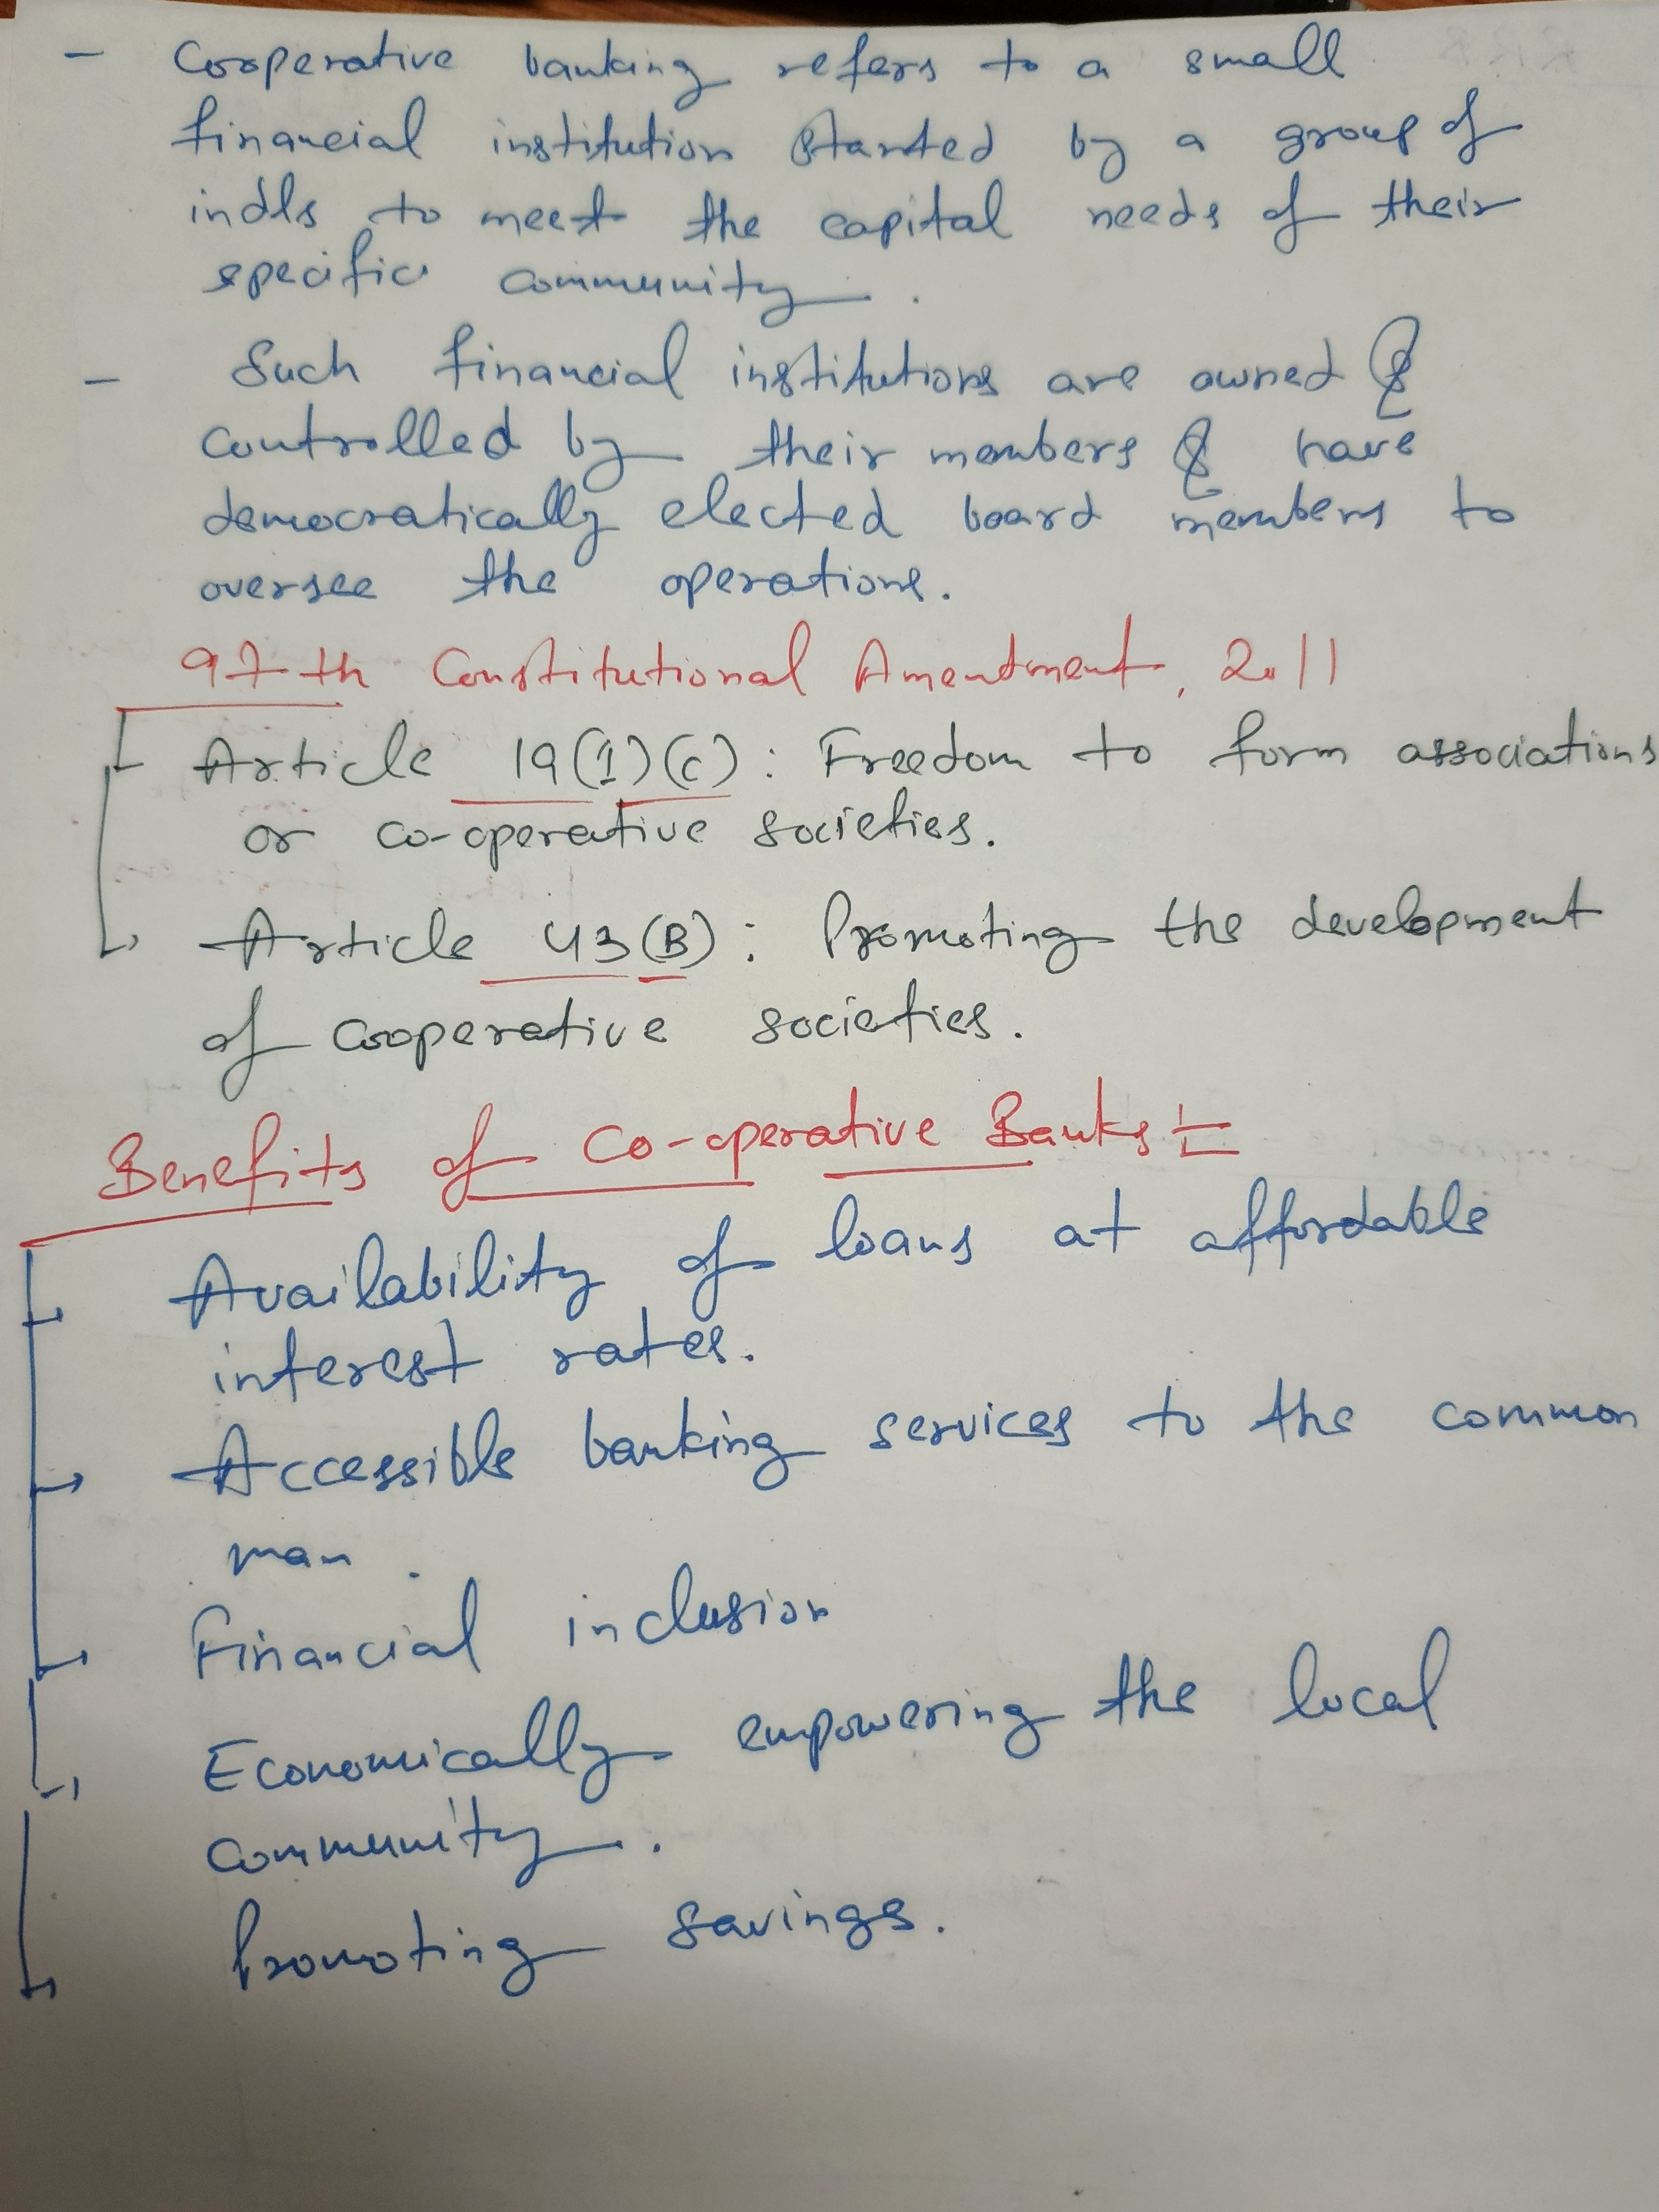 - Cooperative banking refers to a small
financial institution started by a group of
indls to meet the capital needs of their
specific community.
- Such financial institutions are owned &
controlled by their members & have
democratically elected board members to
oversee the operations.
97th Constitutional Amendment, 2011
Article 19(1)(c): Freedom to form associations
or co-operative societies.
Article 43(B): Promoting the development
of cooperative societies.
Benefits of Co-operative Banks:-
Availability of loans at affordable
interest rates.
Accessible banking services to the common
man.
Financial inclusion
Economically empowering the local
community.
Promoting savings.